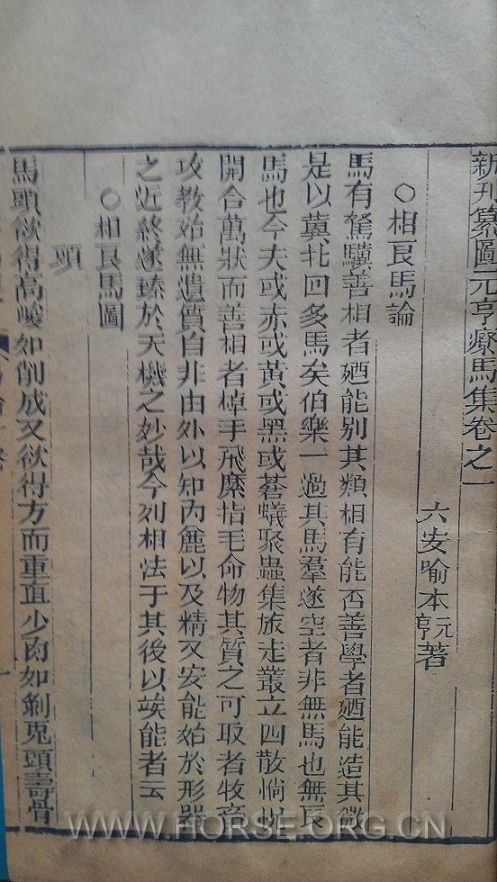 新刊纂圖元亨療馬集卷之一
六安喻本元亨著
○相良馬論
馬有駑驥善相者廼能別其類相有能否善學者廼能造其微
是以冀北回多馬矣伯樂一過其馬羣遂空者非無馬也無良
馬也今夫或赤或黃或黑或蒼蟻聚蟲集旅走叢立四散惝怳
開合萬狀而善相者棹手飛縻指毛命物其質之可取者牧畜
攻教始無遺質自非由外以知內麄以及精又安能始於形器
之近終遂臻於天機之妙哉今列相法于其後以竢能者云
○相良馬圖
頭
馬頭欲得高峻如削成又欲得方而重直少肉如剝兎頭壽骨
WWW.HORSE.ORG.CN